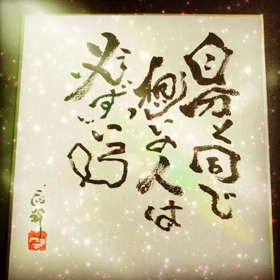 自分と同じ
想いの人は
必ずいる